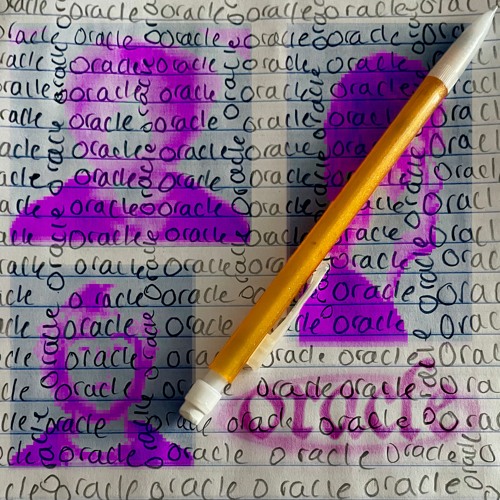 oracle oracle oracle oracle oracle
oracle oracle oracle oracle oracle
oracle oracle oracle oracle oracle
oracle oracle oracle oracle oracle
oracle oracle oracle oracle oracle
oracle oracle oracle oracle oracle
oracle oracle oracle oracle oracle
oracle oracle oracle oracle oracle
oracle oracle oracle oracle oracle
oracle oracle oracle oracle oracle
oracle oracle oracle oracle
oracle oracle oracle oracle oracle
oracle oracle oracle oracle oracle
oracle oracle oracle oracle oracle
oracle oracle oracle oracle oracle
oracle
oracle oracle oracle oracle oracle
oracle oracle oracle oracle oracle